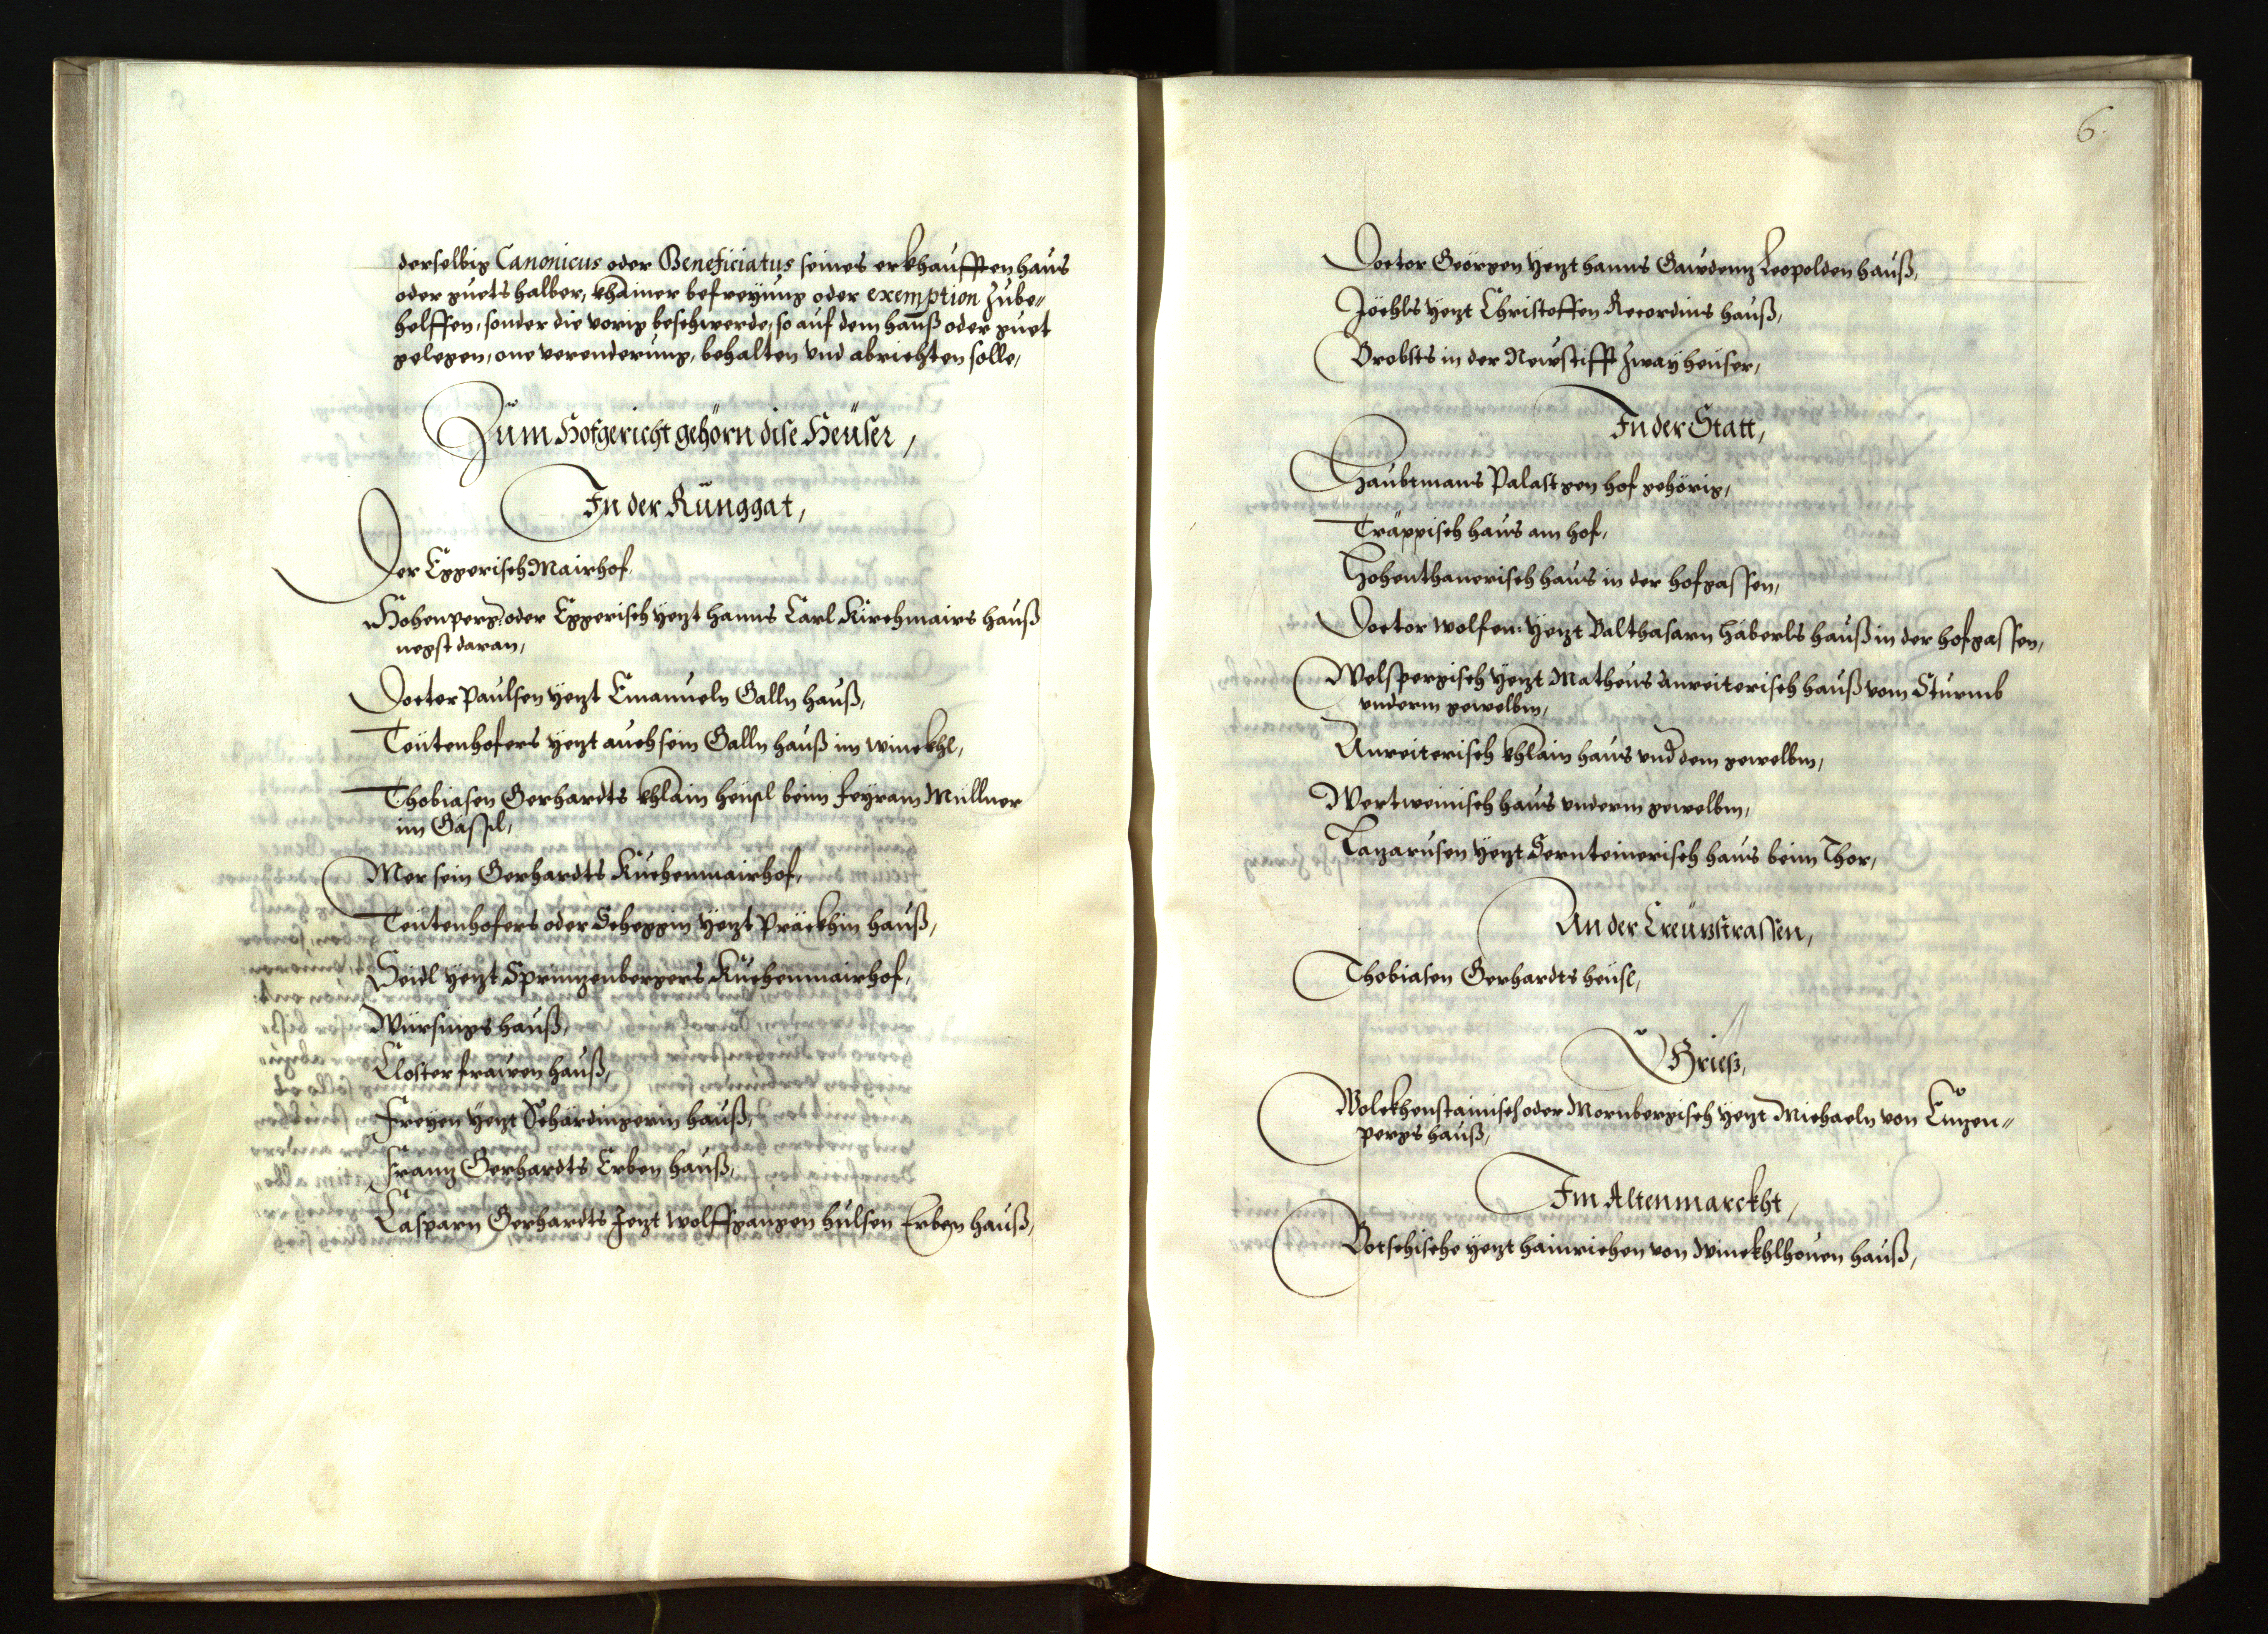 derselbig Canonicus oder Beneficiatus seines erkhaufften haus
oder guets halber, khainer befreyung oder exemption zube„
helffen, sonder die vorig beschwerde, so auf dem hauß oder guet
gelegen, one verenderung, behalten vnd abrichten solle,
Zum Hofgericht gehörn dise Heüser,
In der Runggat,
Der Eggerisch Mairhof,
Hohenperg: oder Eggerisch yetzt hanns Carl Kirchmairs hauß
negst daran,
Doctor Paulsen yetzt Emanueln Galln hauß,
Teütenhofers yetzt auch sein Galln hauß im winckhl,
Thobiasen Gerhardts khlain heüsl beim feyram Müllner
im Gässl,
Mer sein Gerhardts Kuchenmairhof,
Teütenhofers oder yetzt Präckhin hauß,
Seidl yetzt Sprinzenbergers Kuchenmairhof,
Würsings hauß,
Closter frawen hauß,
Freyen yetzt Schärdingerin hauß,
Franz Gerhardts Erben hauß,
Casparn Gerhardts Jetzt wolffgangen hulsen Erben hauß,
6.
Doctor Geörgen yetzt hanns Gaudenz Leopolden hauß,
Jöchls yetzt Christoffen Recordins hauß,
Brobsts in der Newstifft zway heüser,
In der Statt,
Haubtmans Palast gen hof gehörig,
Träppisch haus am hof,
Hohenthanerisch haus in der hofgassen,
Doctor wolfen: yetzt Balthasarn häberls hauß in der hofgassen,
Welspergisch yetzt Matheus Anreiterisch hauß vom Sturmb
vnderm gewelbm,
Anreiterisch khlain haus vnd dem gewelbm,
Wertweinisch haus vnderm gewelbm,
Lazarusen yetzt Sernteinerisch haus beim Thor,
An der Creützstrassen,
Thobiasen Gerhardts heüsl,
Grieß,
Wolckhenstainisch oder Mornbergisch yetzt Michaeln von Enzen„
pergs hauß,
Im Altenmarckht,
Botschische yetzt hainrichen von Winckhlhouen hauß,